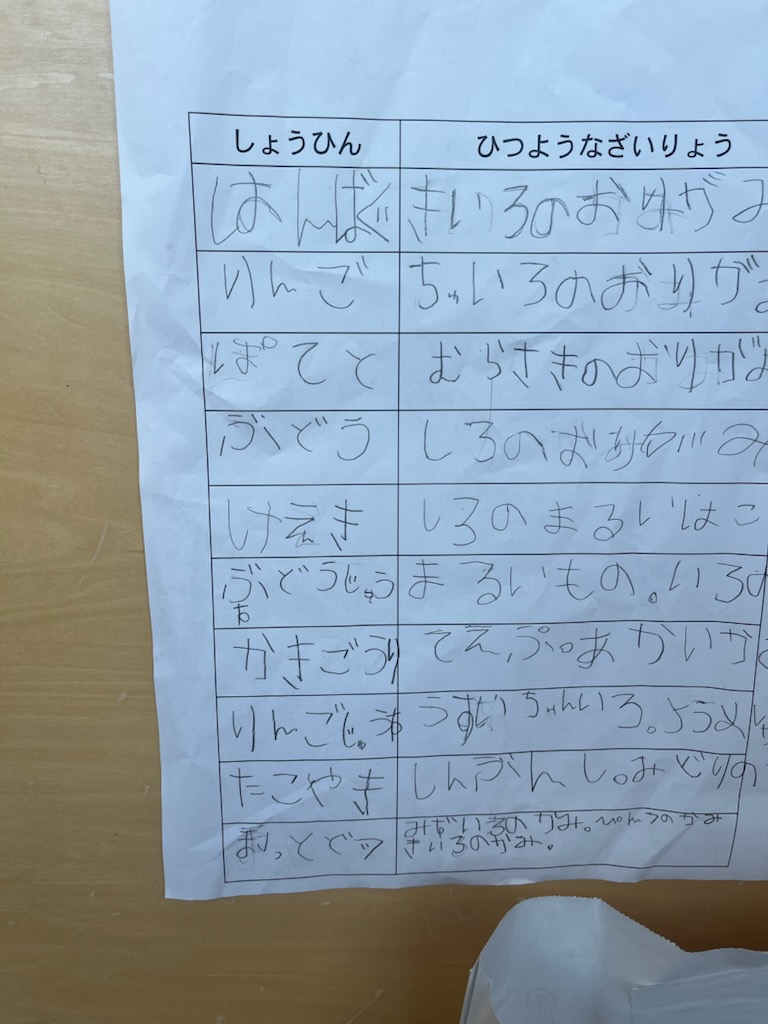 しょうひん ひつようなざいりょう
はんばぐ きいろのおりがみ
りんご ちゃいろのおりがみ
ぽてと むらさきのおりがみ
ぶどう しろのおりがみ
けえき しろのまるいはこ
ぶどうじゅう まるいもの。いろの
かきごうり てえぷ。あかいか
りんごじゅう うすいちゃんいろ。ようし
たこやき しんぶんし。みどりの
ほっとどッ みずいろのかみ。ぴんくのかみ
きいろのかみ。